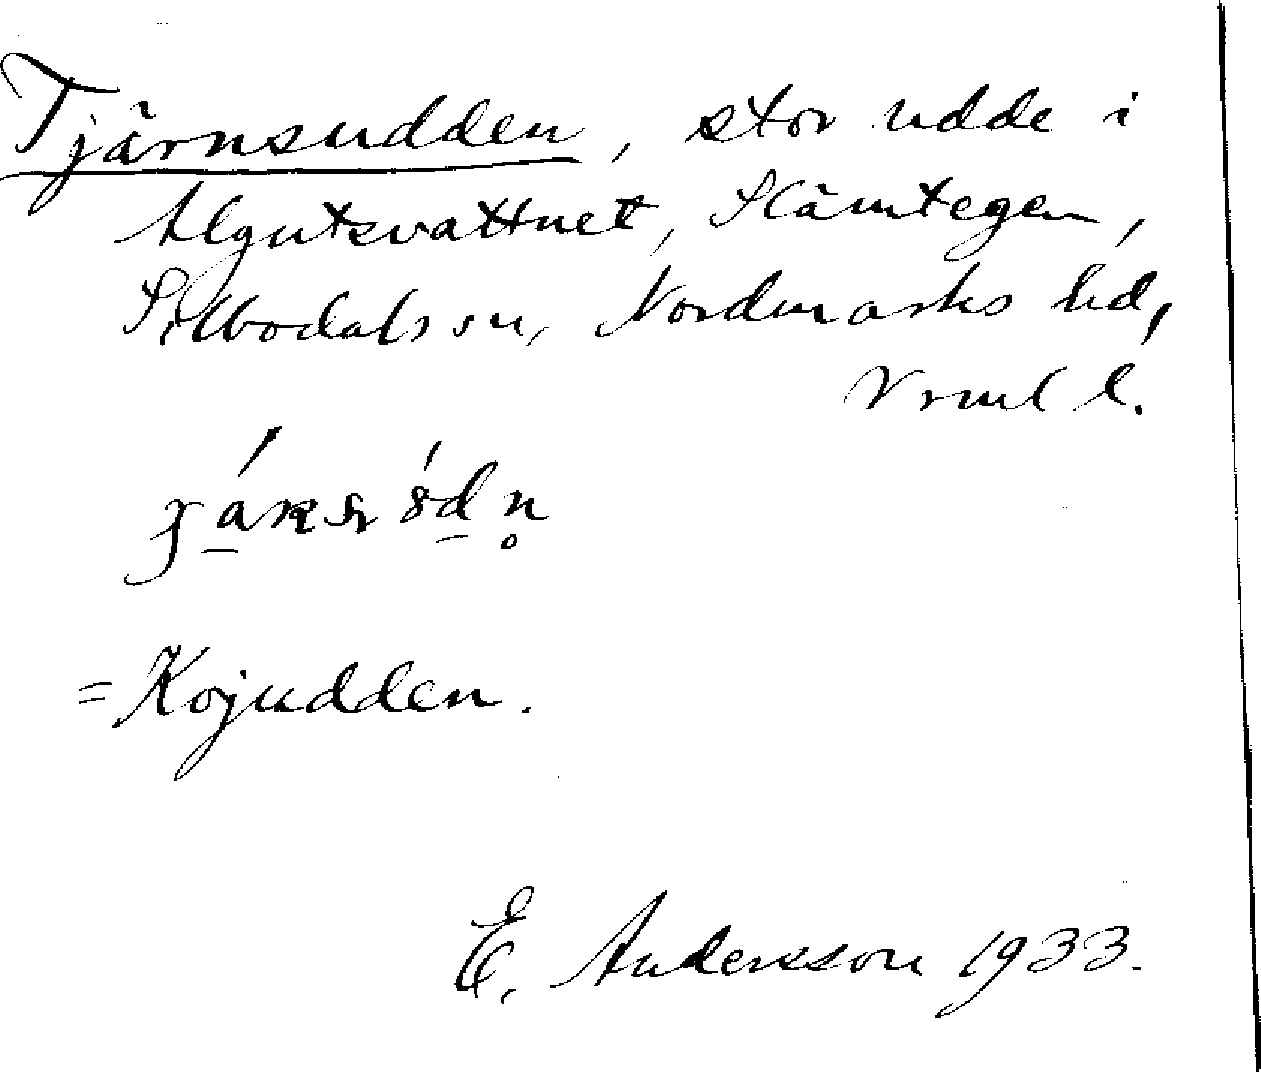 Tjärnsudden, stor udde i
Algutsvattnet, Slämtegen,
Silbodals sn, Nordmarks hd,
Vrml l.
= Kojudden.
E. Andersson 1933.